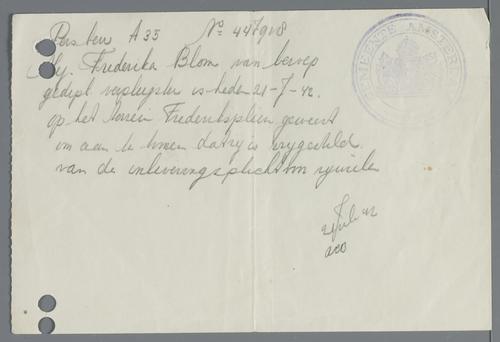 Pers bew A35 No 447918
Mej. Frederika Blom van beroep
gedipl. verpleegster is heden 21-7-42
op het terrein Frederiksplein geweest
om aan te tonen dat zij is vrijgesteld
van de inleveringsplicht van rijwielen
21 Juli 42
GEMEENTE AMSTERDAM